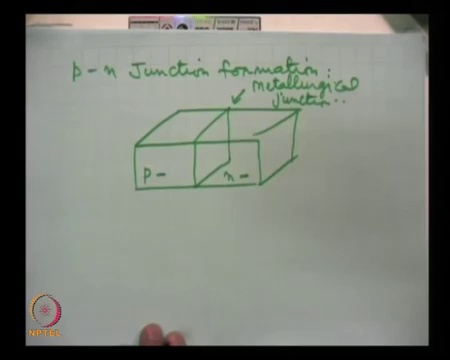 p-n Junction formation:
metallurgical
junction..
p -
n -
NPTEL